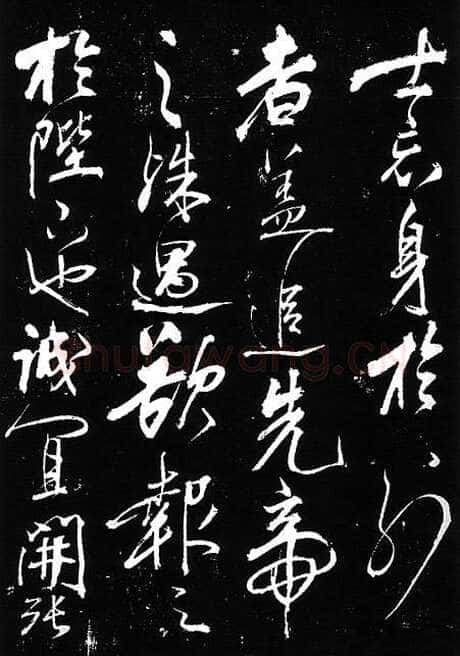 士忘身於外
者盖追先帝
之殊遇欲報之
於陛下也誠宜開張
shufawang.cn